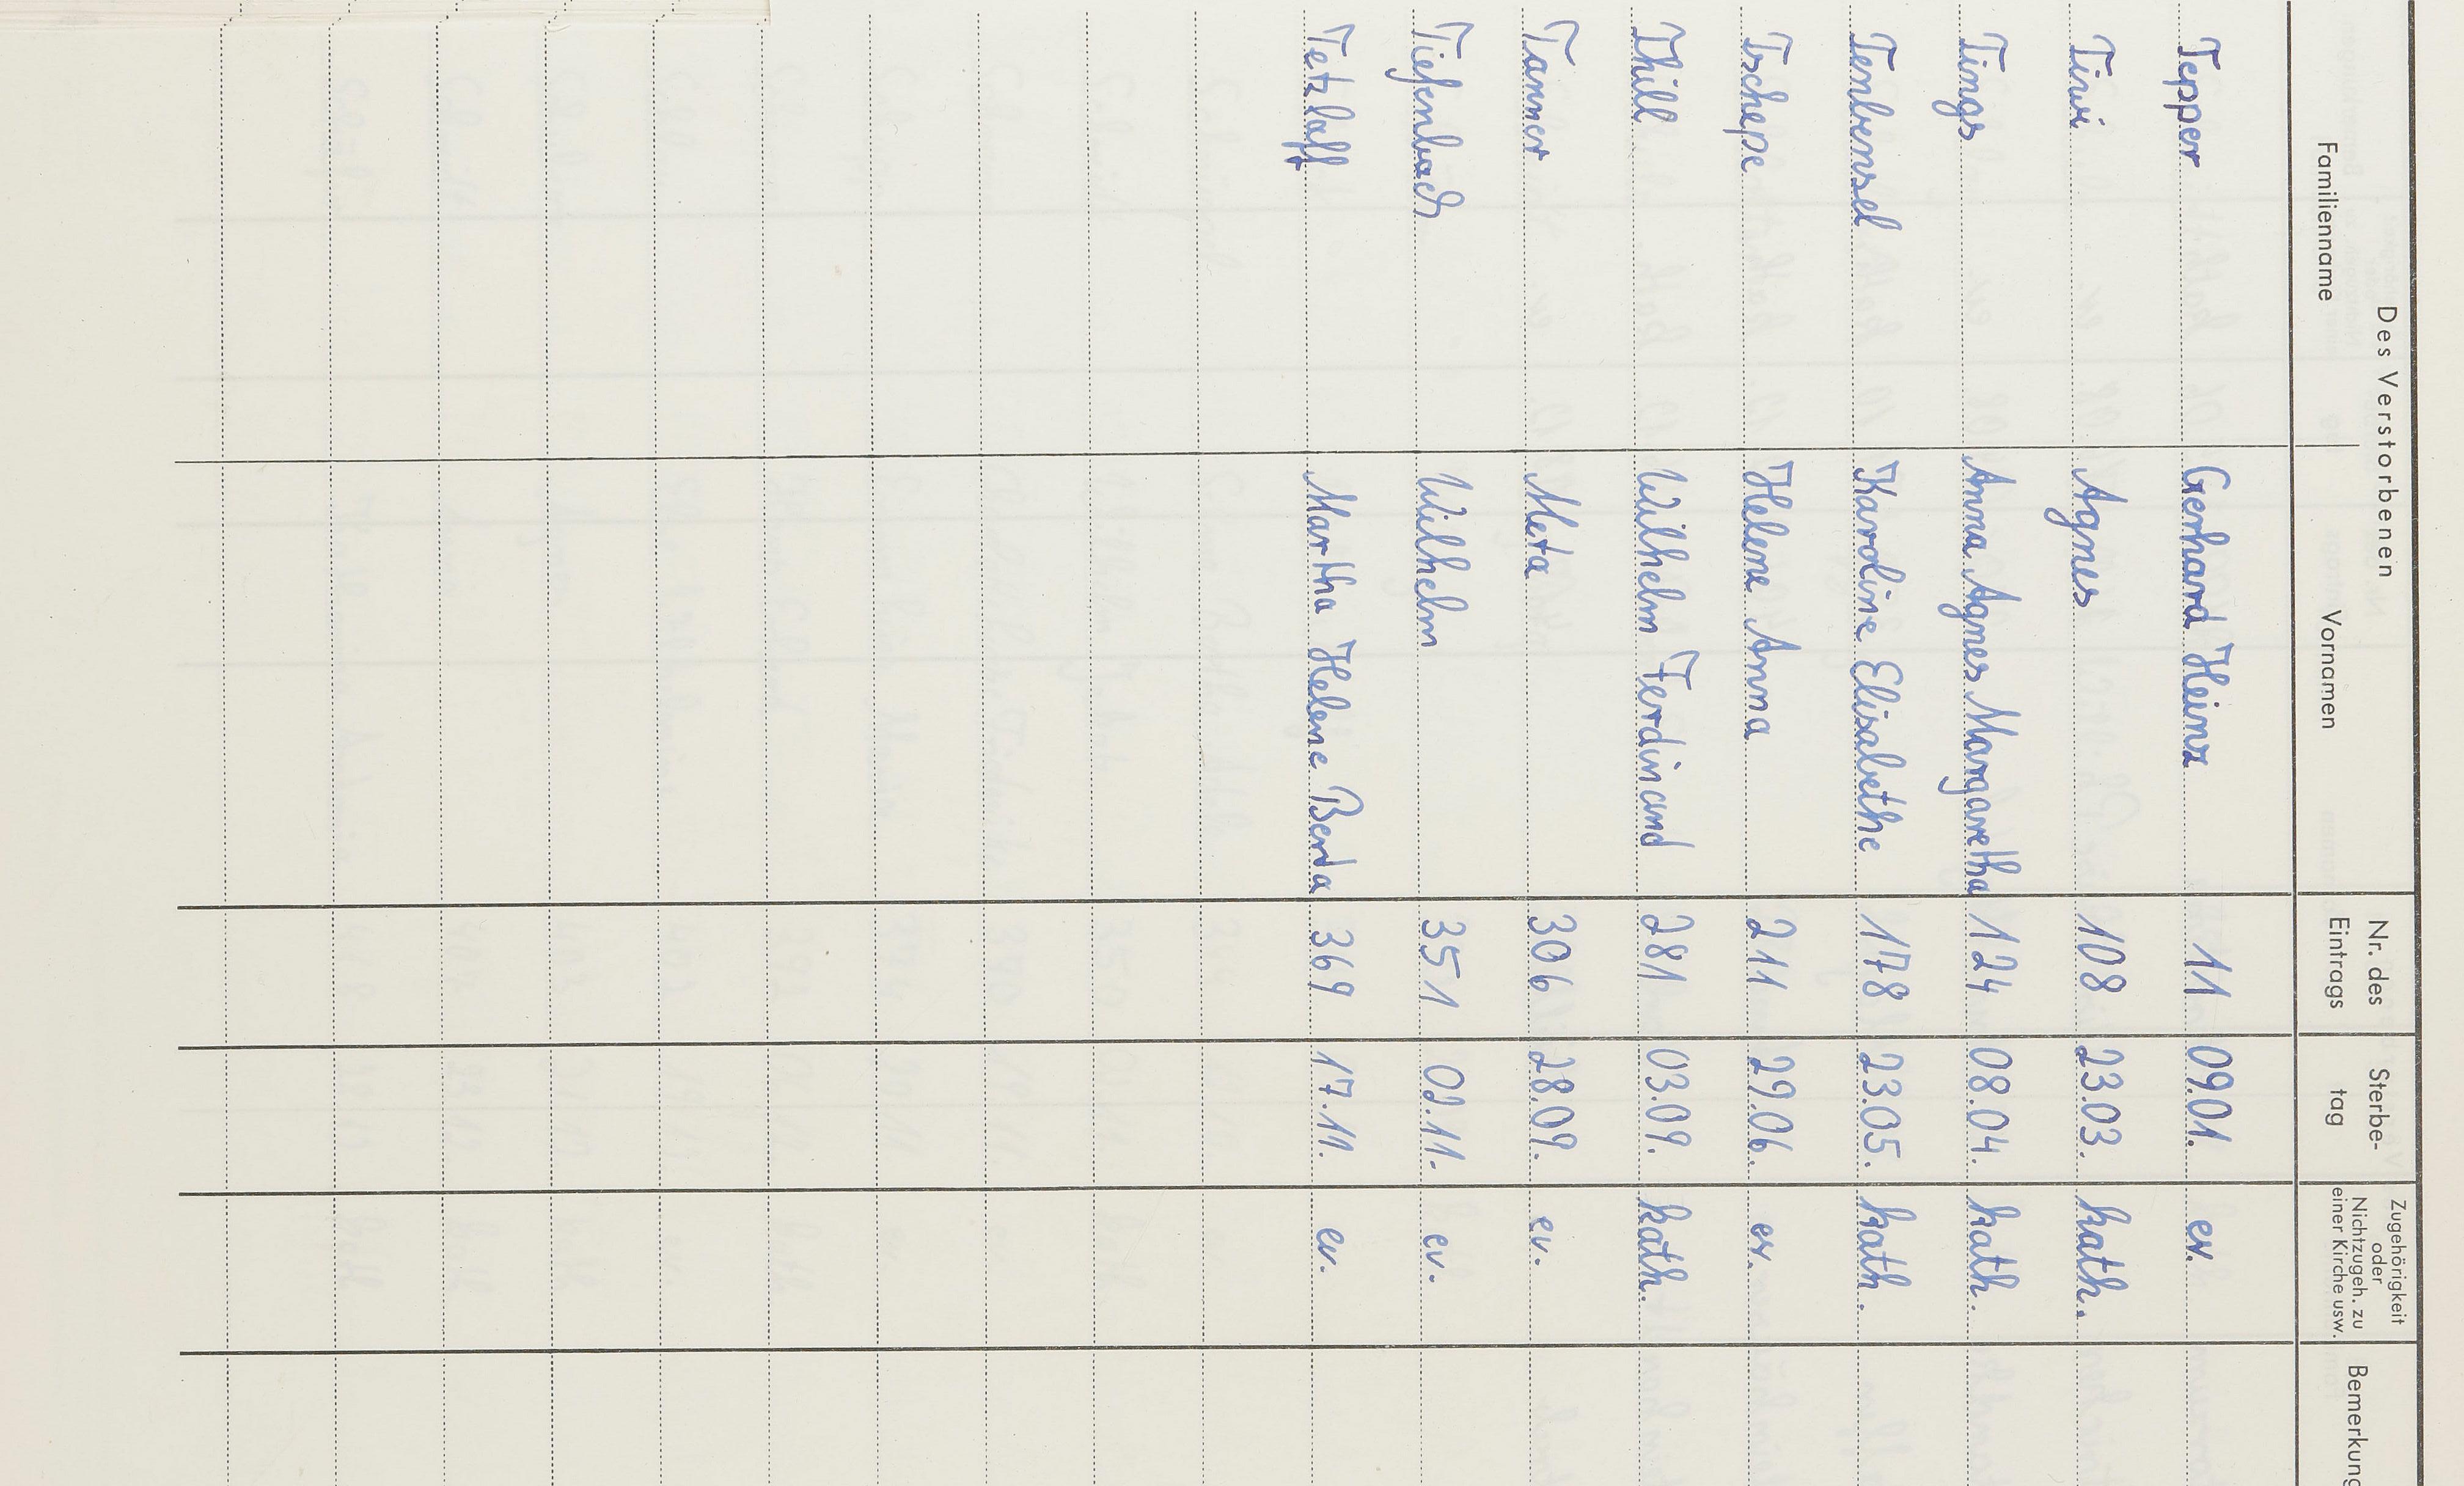 Des Verstorbenen
Familienname Vornamen Nr. des Eintrags Sterbe-tag Zugehörigkeit oder Nichtzugeh. zu einer Kirche usw. Bemerkung
Tepper Gerhard Heinz 11 09.01. ev.
Agnes 108 23.03. kath.
Tings Anna Agnes Margaretha 124 08.04. kath.
Tenbensel Karoline Elisabethe 178 23.05. kath.
Tschepe Helene Anna 211 29.06. ev.
Thill Wilhelm Ferdinand 281 03.09. kath.
Tanner Meta 306 28.09. ev.
Tiefenbach Wilhelm 351 02.11. ev.
Tetzlaff Martha Helene Berta 369 17.11. ev.